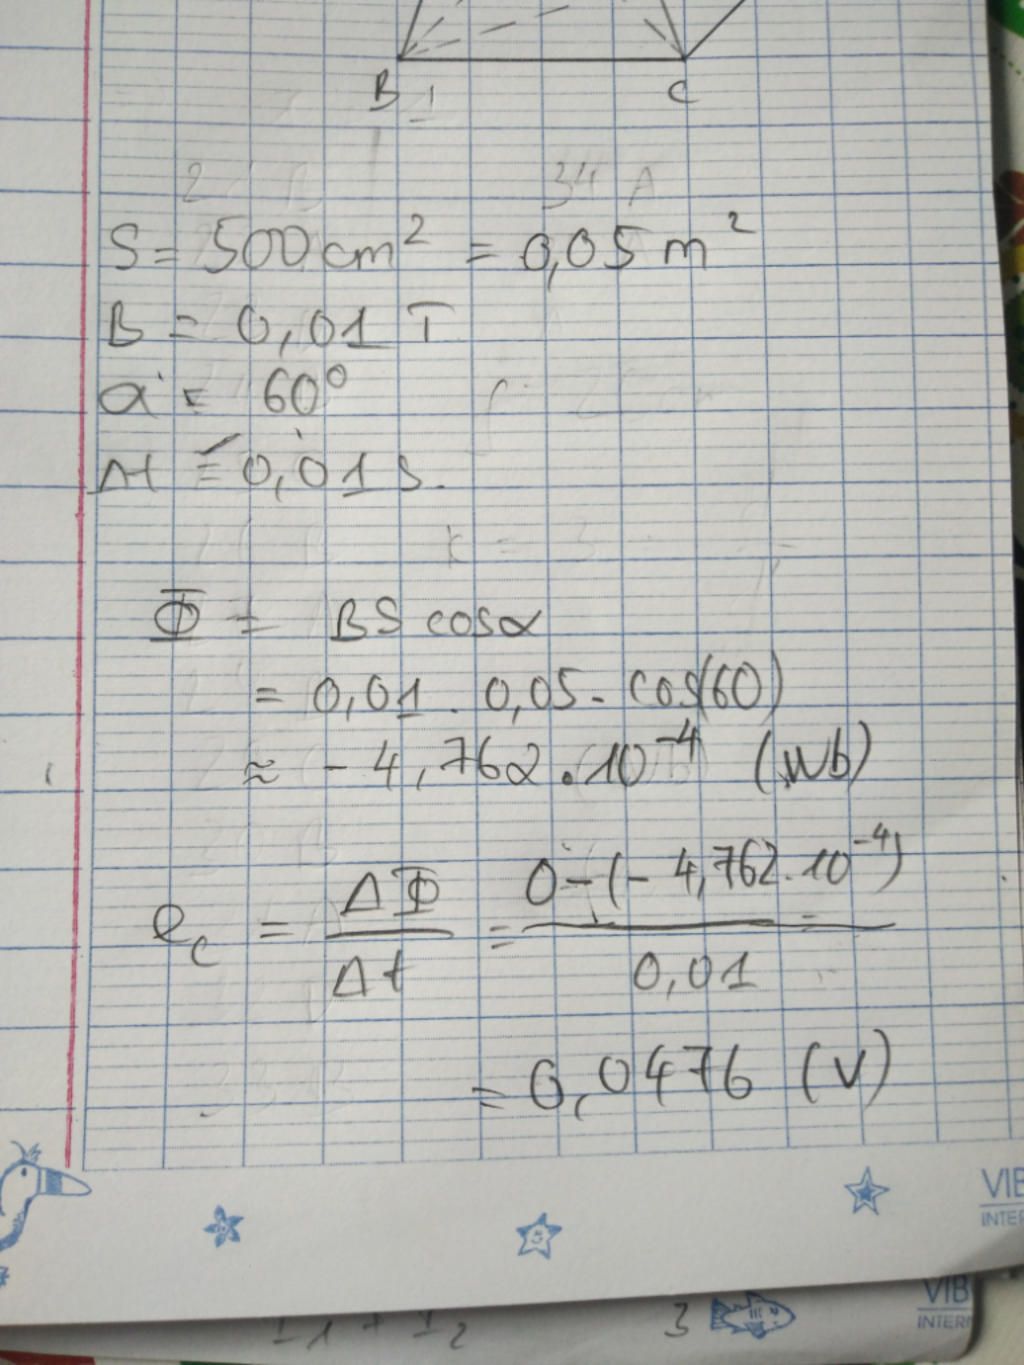 B
C
S = 500 cm² = 0,05 m²
B = 0,01 T
α = 60°
Δt = 0,01 s.
Φ = BS cosα
= 0,01 . 0,05 . cos(60)
≈ -4,762.10⁻⁴ (Wb)
e_c = ΔΦ/Δt = (0-(-4,762.10⁻⁴))/0,01
= 0,0476 (V)
VIB
INTER
VIB
INTERN
I1 + I2
3